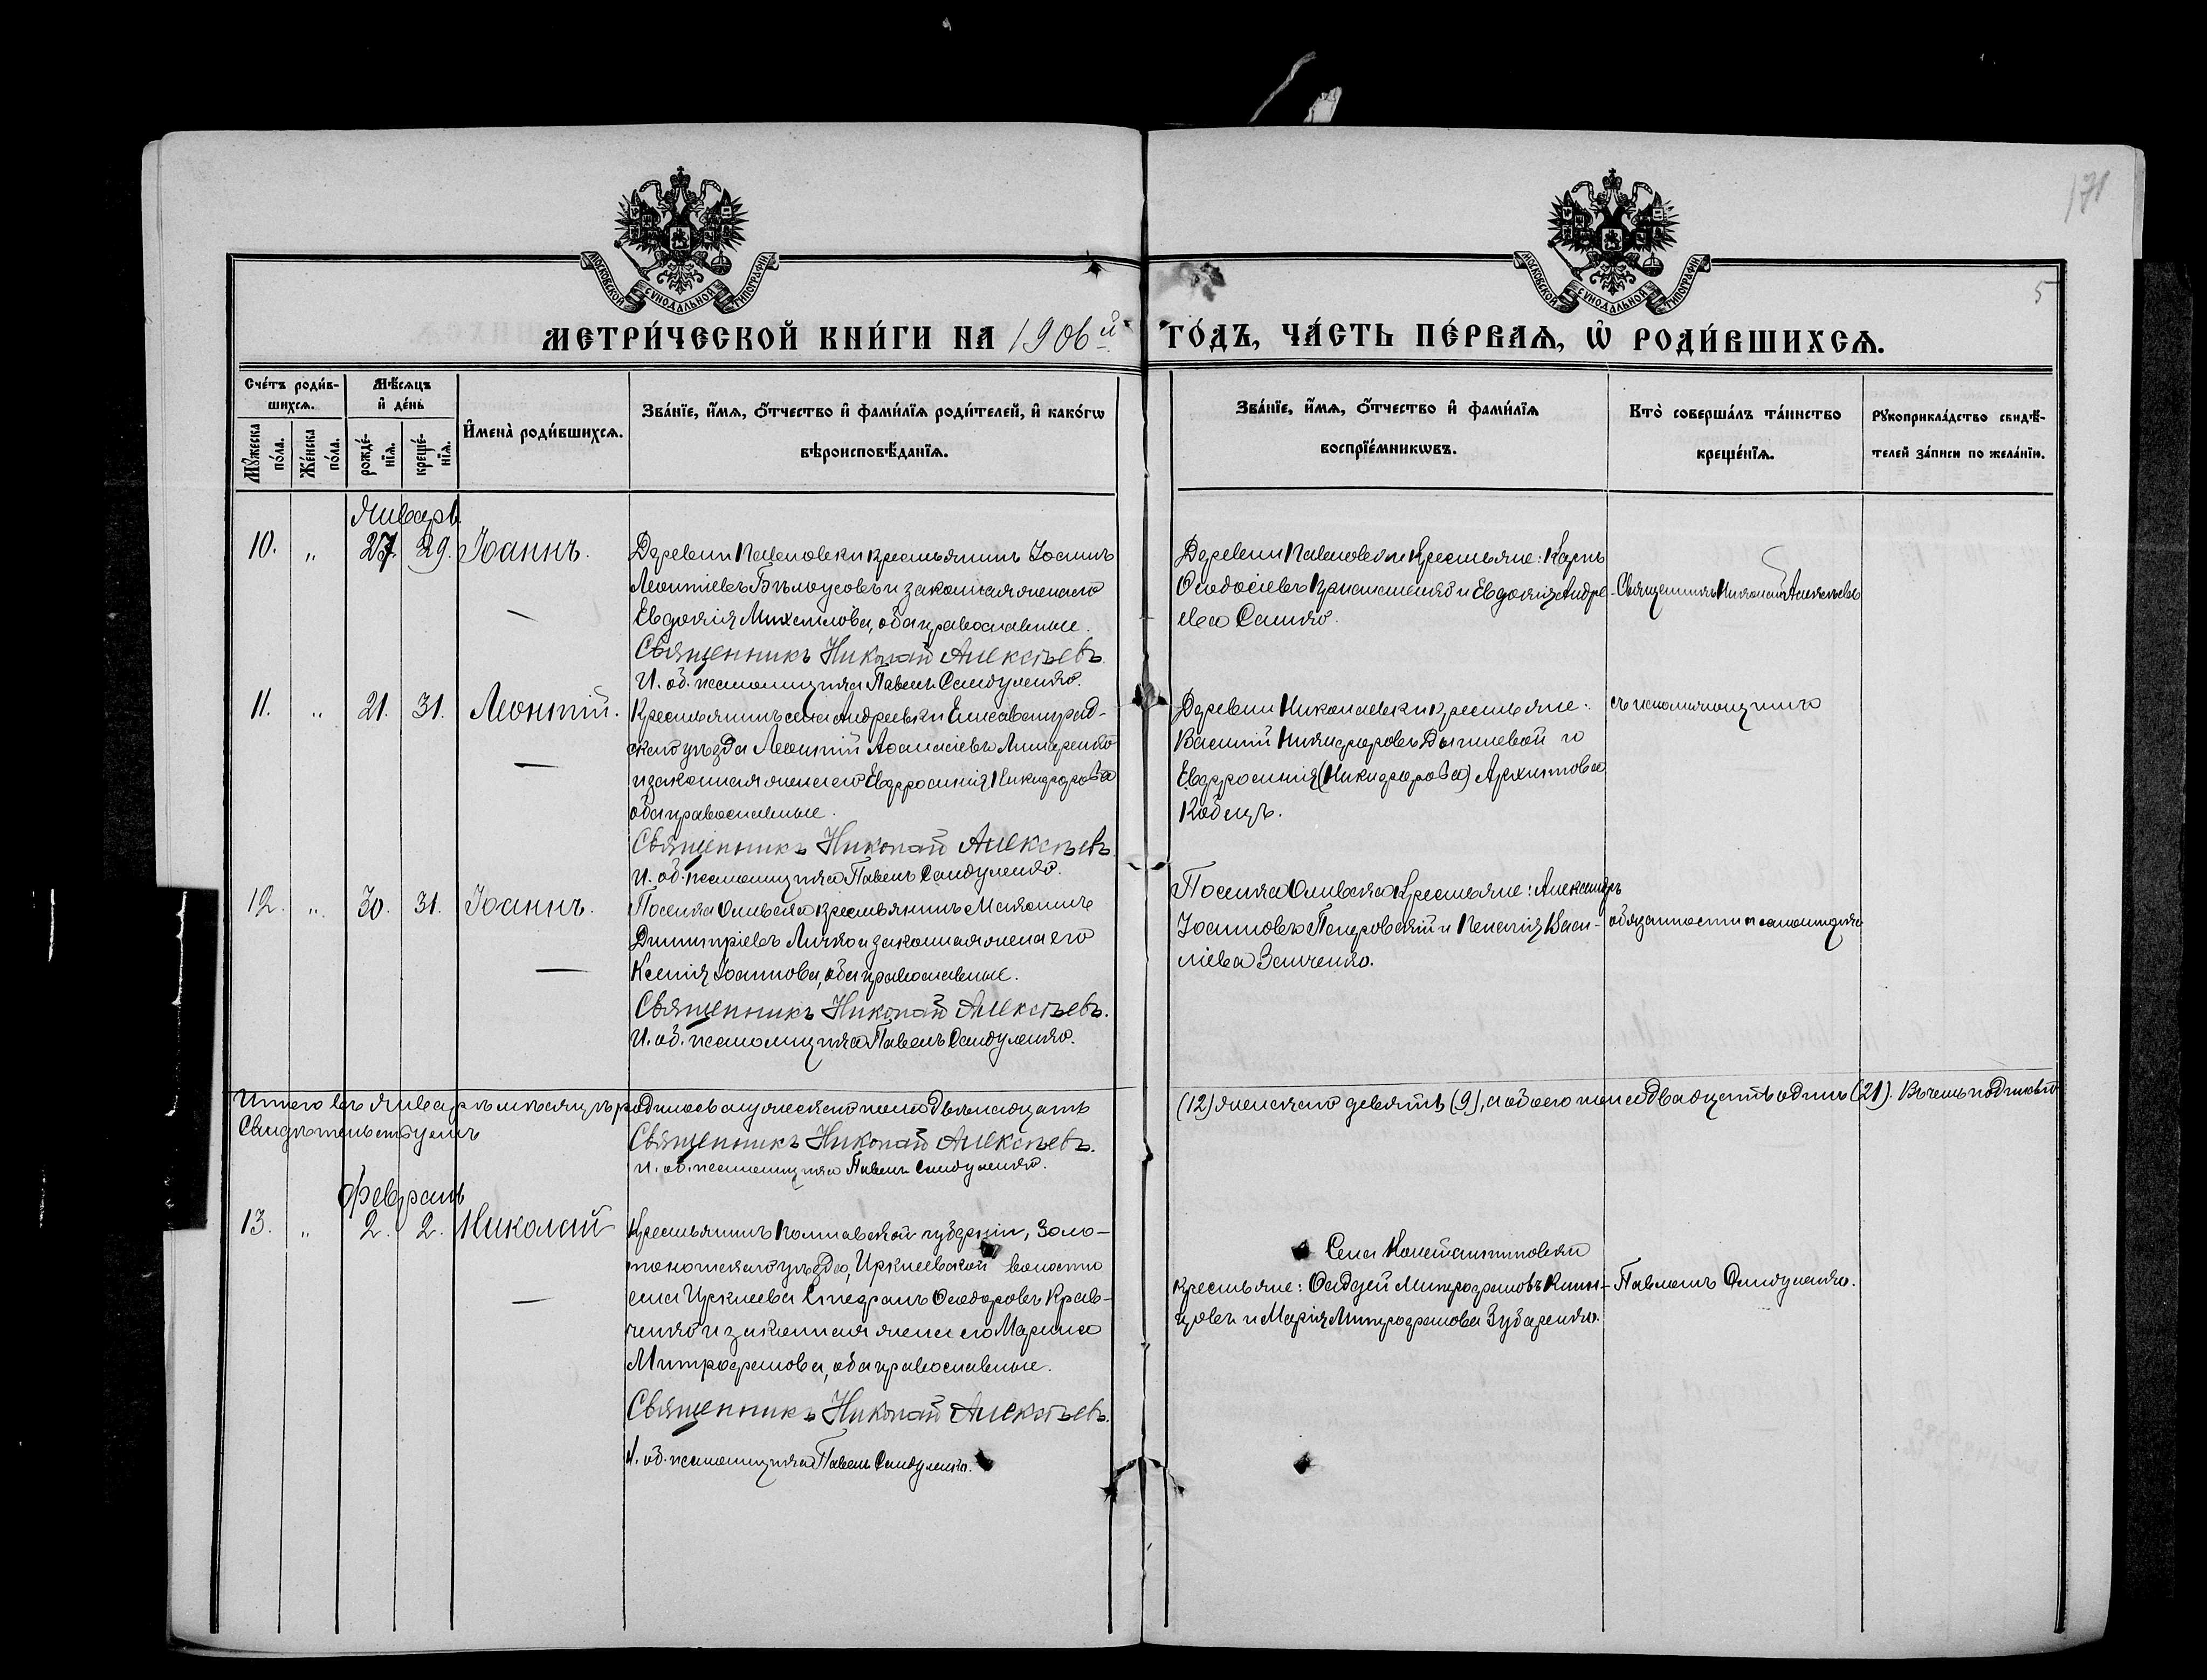 171
МОСКОВСКОЙ СѴНОДАЛЬНОЙ ТИПОГРАФІИ
МОСКОВСКОЙ СѴНОДАЛЬНОЙ ТИПОГРАФІИ
5
МЕТРИ́ЧЕСКОЙ КНИ́ГИ НА 1906й
ГО́ДЪ, ЧА́СТЬ ПЕ́РВАѦ, Ѡ҆ РОДИ́ВШИХСѦ.
Сче́тъ роди́в-
шихсѧ.
Мѣ́сѧцъ
и҆ де́нь
Мꙋ́жеска по́ла.
Же́нска по́ла.
рожде́-
нїѧ.
креще́-
нїѧ.
И҆мена̀ роди́вшихсѧ.
Зва́нїе, и҆́мѧ, ѻ҆́тчество и҆ фами́лїѧ роди́телей, и҆ како́гѡ
вѣроисповѣ́данїѧ.
Зва́нїе, и҆́мѧ, ѻ҆́тчество и҆ фами́лїѧ
воспрїе́мникѡвъ.
Кто̀ соверша́лъ та́инство
креще́нїѧ.
Рꙋкоприкла́дство свидѣ́-
телей за́писи по жела́нїю.
Январь
10. „ 27. 29. Іоаннъ.
Деревни Павловки крестьянинъ Іоаннъ
Леонтіевъ Бѣлоусовъ и законная жена его
Евдокія Михаилова, оба православные.
Священникъ Николай Алексѣевъ.
И. об. псаломщика Павелъ Сандуленко.
Деревни Павловки крестьяне: Карпъ
Ѳеодосіевъ и Евдокія Андре-
ева
Священникъ Николай Алексѣевъ
11. „ 21. 31. Леонтій.
Крестьянинъ села Андреевки Елисаветград-
скаго уѣзда Леонтій Аѳанасіевъ
и законная жена его Евфросинія Никифорова
оба православные.
Священникъ Николай Алексѣевъ
И. об. псаломщика Павелъ Сандуленко.
Деревни Николаевки крестьяне:
Василій Никифоровъ и
Евфросинія (Никифорова) Архипова
Кобецъ.
съ исполняющимъ
12. „ 30. 31. Іоаннъ.
Поселка Ольвска крестьянинъ Максимъ
Димитріевъ Личко и законная жена его
Ксенія Іоаннова, оба православные.
Священникъ Николай Алексѣевъ.
И. об. псаломщика Павелъ Сандуленко.
Поселка Ольвска крестьяне: Александръ
Іоанновъ и Васи-
ліева Зинченко.
обязанности псаломщика
Итого въ Январѣ мѣсяцѣ родилось мужескаго пола двѣнадцать
(12) женскаго девять (9), а обоего пола двадцать одинъ (21). Въ чемъ подписью
Свидѣтельствуемъ
Священникъ Николай Алексѣевъ.
И. об. псаломщика Павелъ Сандуленко.
Февраль
13. „ 2. 2. Николай
Крестьянинъ Полтавской губерніи, Золо-
тоношскаго уѣзда, Ирклеевской волости
села Ирклеева Стефанъ Ѳеодоровъ Крав-
ченко и законная жена его Марина
Митрофанова, оба православные.
Священникъ Николай Алексѣевъ.
И. об. псаломщика Павелъ Сандуленко.
Села Константиновки
крестьяне: Ѳаддей Митрофановъ
и Марія Митрофанова Зубаренко.
Павломъ Сандуленко.